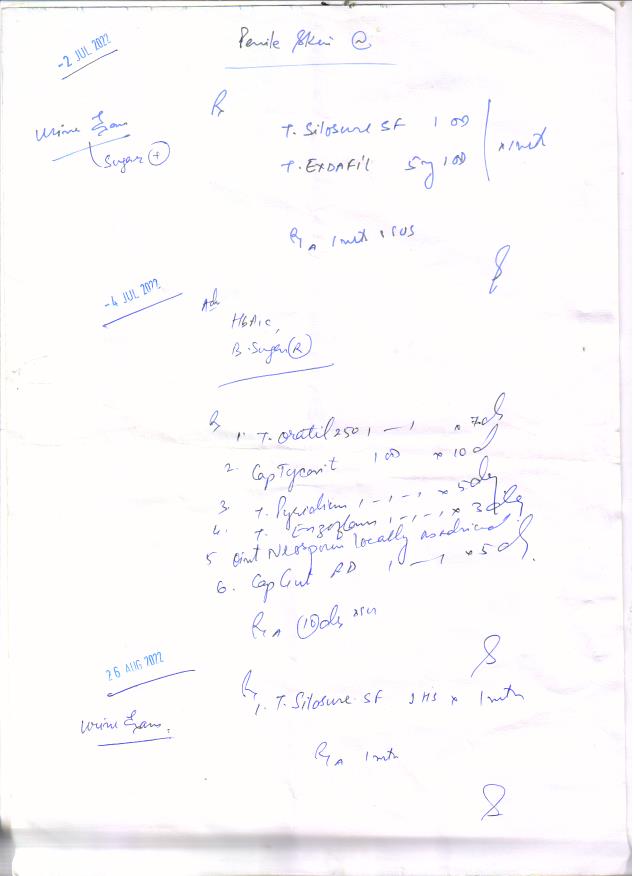 -2 JUL 2022
Penile Skin
Urine Exam
Sugar (+)
Rx
T. Silosure SF 1 OD
T. EXDAFIL 5mg 1 OD
x 1 mth
-4 JUL 2022
Adv
HbA1c,
B. Sugar (R)
Rx
1. T. Oratil 250 1 - 1 x 7 ds
2. Cap Tycorit 1 OD x 10 d
3. T. Pyridium 1-1-1 x 5 days
4. T. Enzoflam 1-1-1 x 3 days
5 Oint Neosporin locally as advised
6. Cap Gut RD 1 - 1 x 5 ds.
26 AUG 2022
Urine Exam.
Rx
1. T. Silosure SF 1 HS x 1 mth
1 mth